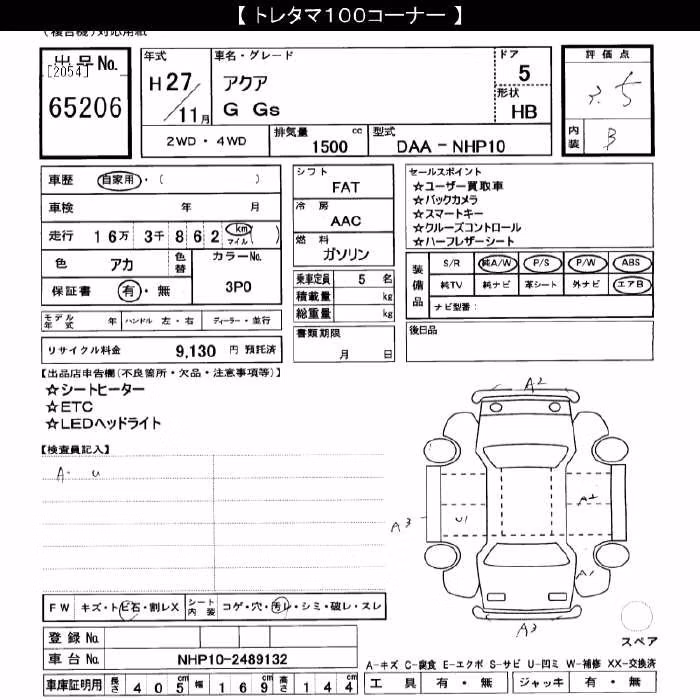 【 トレタマ100コーナー 】
(複合機)対応用紙
出品No.
[2054]
65206
年式
H27/11月
車名・グレード
アクア
G Gs
ドア
5
形状
HB
2WD・4WD
排気量 1500 cc
型式 DAA-NHP10
評価点
内装 B
車歴 自家用・( )
車検 年 月
走行 16万 3千 862 km マイル ( )
色 アカ
色替
カラーNo.
3P0
保証書 有・無
モデル年式 年 ハンドル 左・右 ディーラー・並行
リサイクル料金 9,130 円 預託済
シフト
FAT
冷房
AAC
燃料
ガソリン
乗車定員 5 名
積載量 kg
総重量 kg
書類期限
月 日
セールスポイント
☆ユーザー買取車
☆バックカメラ
☆スマートキー
☆クルーズコントロール
☆ハーフレザーシート
装備品
S/R 純A/W P/S P/W ABS
純TV 純ナビ 革シート 外ナビ エアB
ナビ型番:
後日品
【出品店申告欄(不良箇所・欠品・注意事項等)】
☆シートヒーター
☆ETC
☆LEDヘッドライト
【検査員記入】
A・U
A2
A3
U1
A2
A1
A3
FW キズ・トビ石・割レX シート内装 コゲ・穴・汚レ・シミ・破レ・スレ
スペア
登録No.
車台No. NHP10-2489132
車庫証明用 長さ 405 cm 幅 169 cm 高さ 144 cm
A-キズ C-腐食 E-エクボ S-サビ U-凹ミ W-補修 XX-交換済
工具 有・無 ジャッキ 有・無